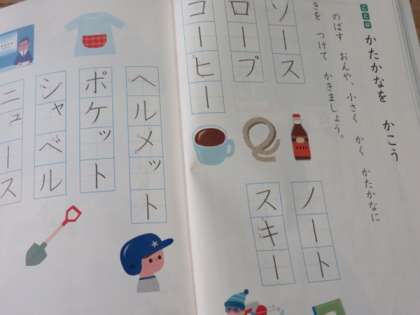 ことば
かたかなを かこう
のばす おんや、小さく かく かたかなに
きを つけて かきましょう。
ソース
ロープ
コーヒー
ノート
スキー
ヘルメット
ポケット
シャベル
ニュース